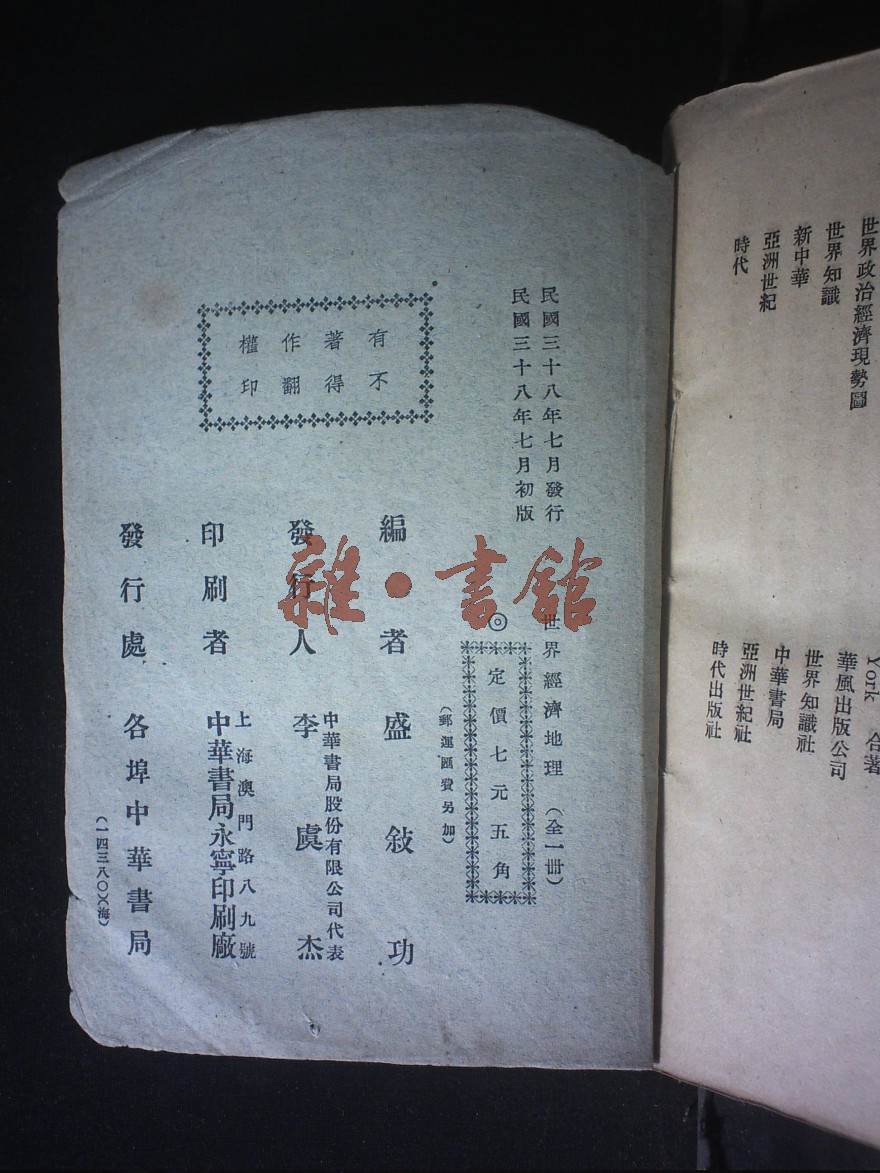 世界政治經濟現勢圖
世界知識
新中華
亞洲世紀
時代
York 合著
華風出版公司
世界知識社
中華書局
亞洲世紀社
時代出版社
民國三十八年七月發行
民國三十八年七月初版
世界經濟地理(全一冊)
◎
定價七元五角
(郵運匯費另加)
有不
著得
作翻
權印
編者 盛敍功
發行人 李虞杰
中華書局股份有限公司代表
印刷者 中華書局永寧印刷廠
上海澳門路八九號
發行處 各埠中華書局
(一四三八〇)(海)
雜·書館